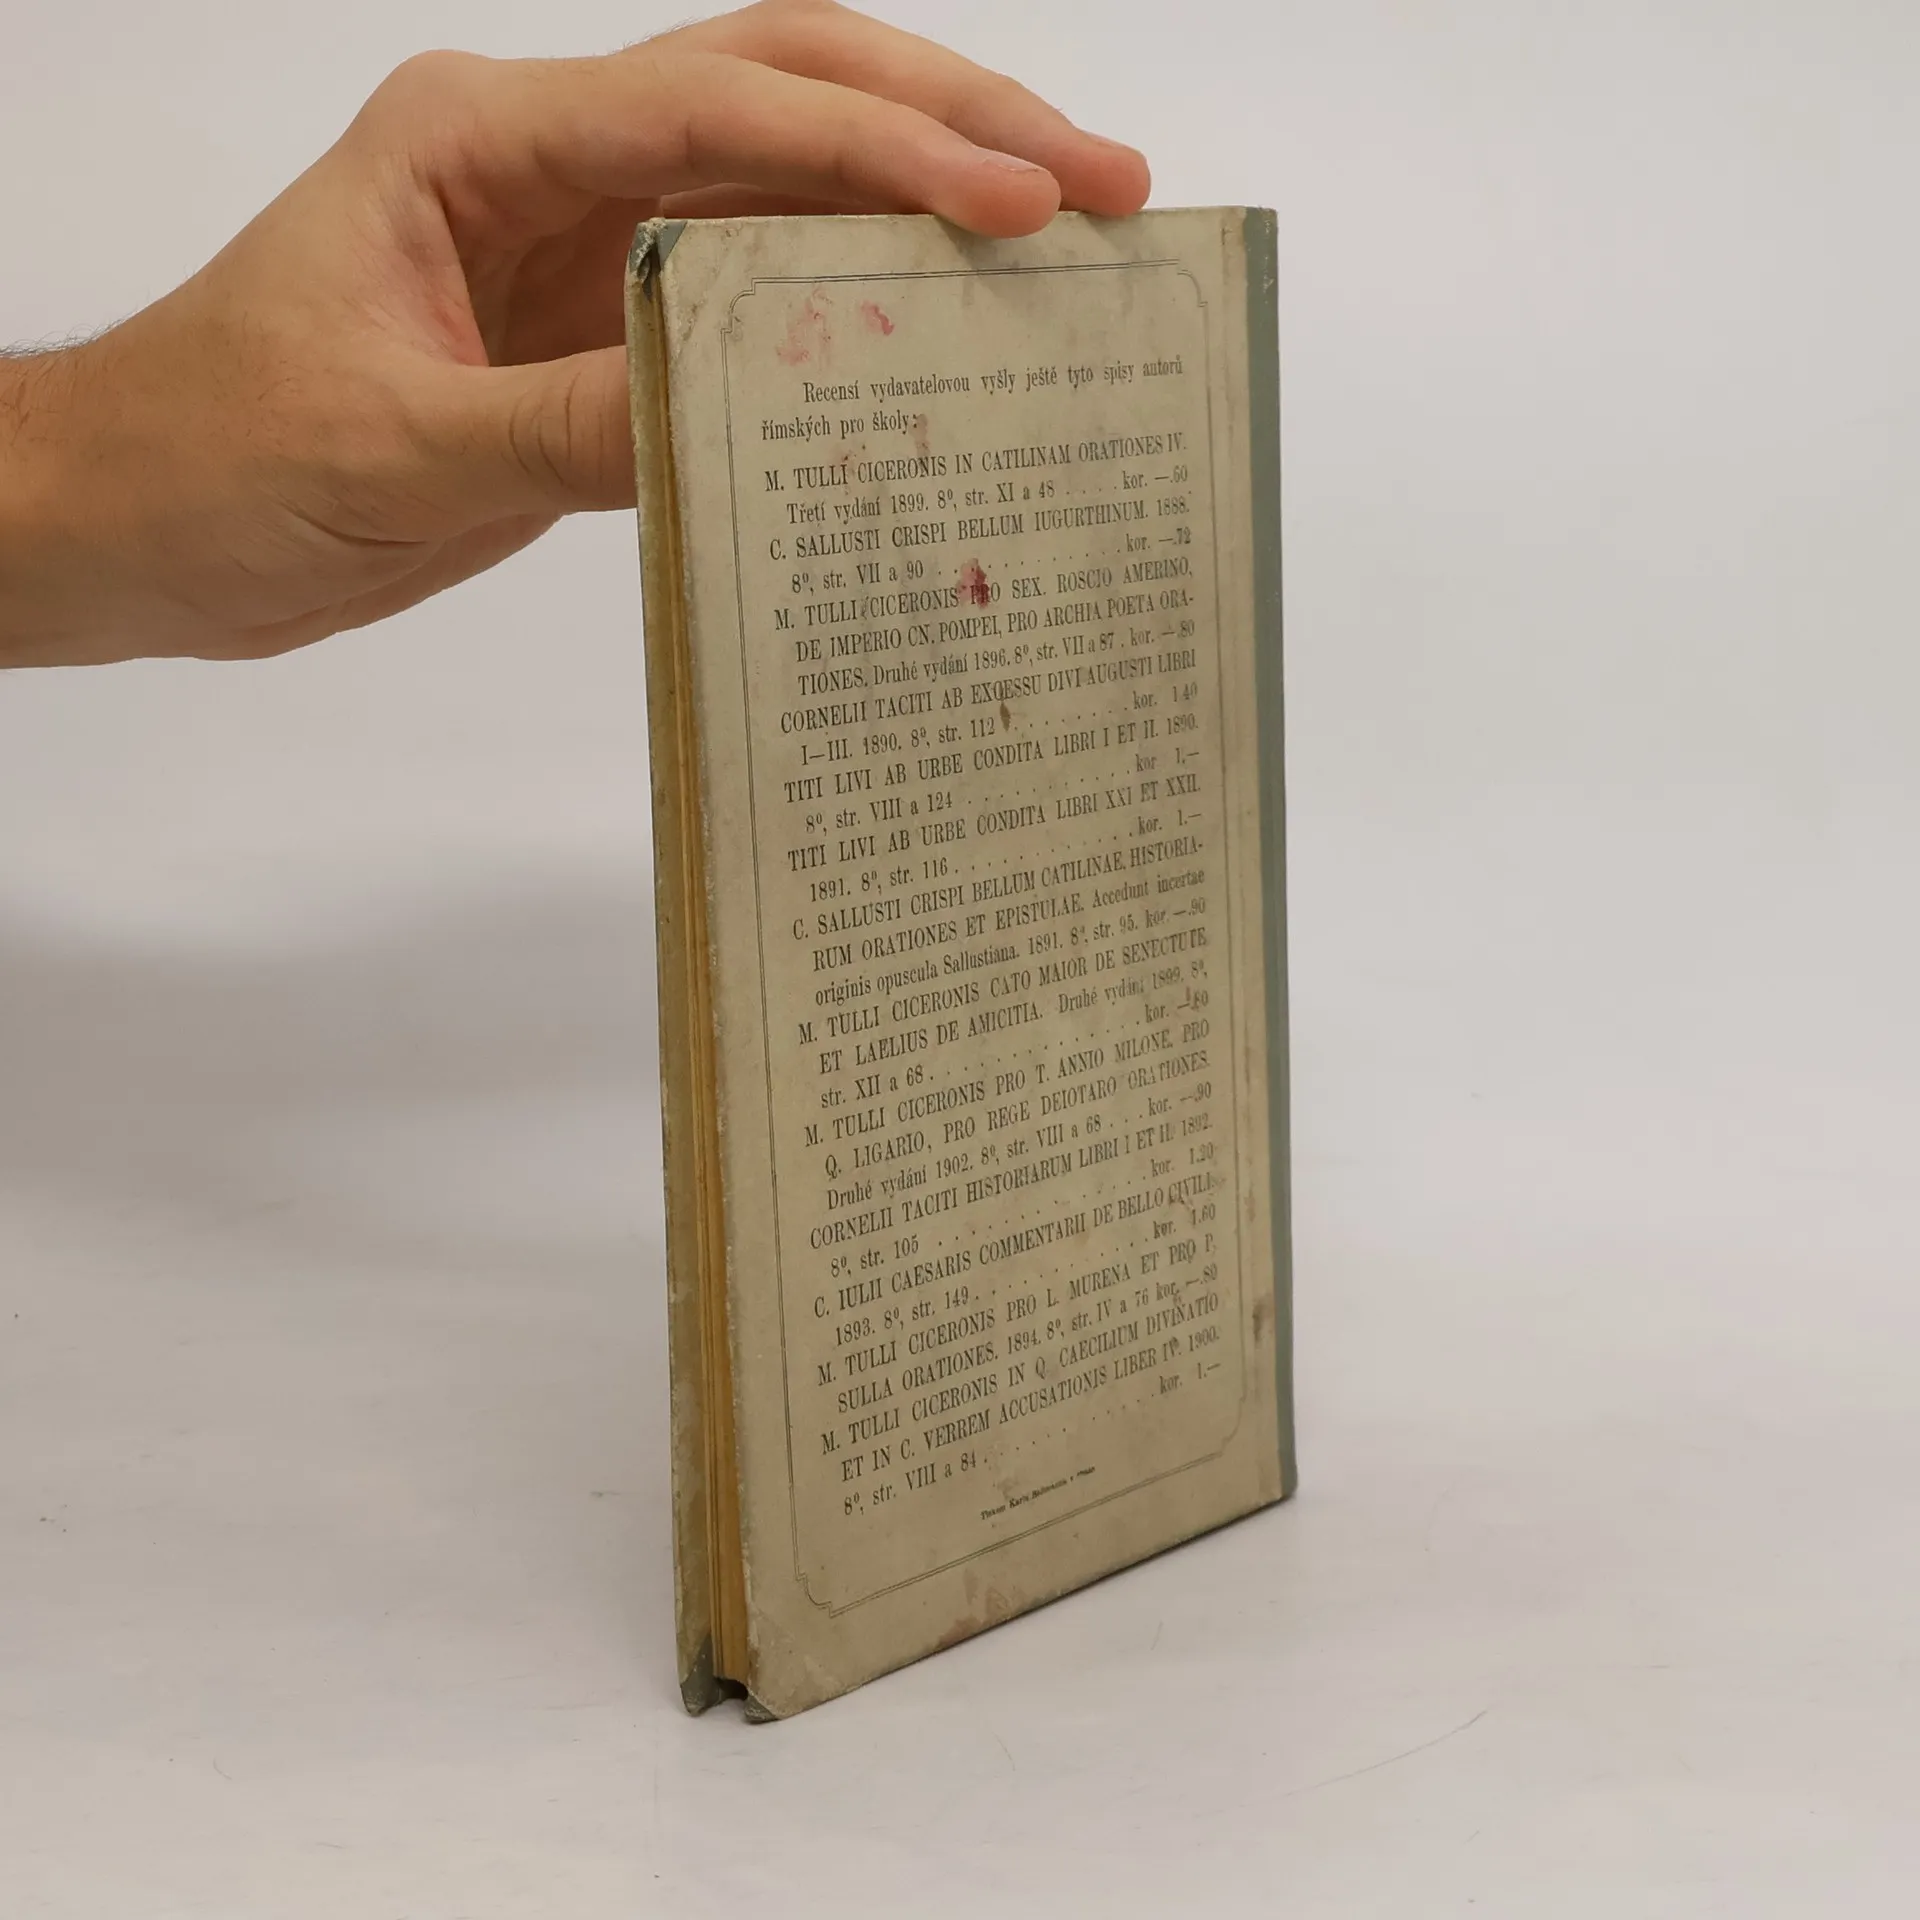 Recensí vydavatelovou vyšly ještě tyto spisy autorů
římských pro školy:
M. TULLI CICERONIS IN CATILINAM ORATIONES IV.
Třetí vydání 1899. 8º, str. XI a 48 . . . . kor. —.60
C. SALLUSTI CRISPI BELLUM IUGURTHINUM. 1888.
8º, str. VII a 90 . . . . . . . . . . . kor. —.72
M. TULLI CICERONIS PRO SEX. ROSCIO AMERINO,
DE IMPERIO CN. POMPEI, PRO ARCHIA POETA ORA-
TIONES. Druhé vydání 1896. 8º, str. VII a 87 . kor. —.80
CORNELII TACITI AB EXCESSU DIVI AUGUSTI LIBRI
I—III. 1890. 8º, str. 112 . . . . . . . . kor. 1.40
TITI LIVI AB URBE CONDITA LIBRI I ET II. 1890.
8º, str. VIII a 124 . . . . . . . . . . . kor 1.—
TITI LIVI AB URBE CONDITA LIBRI XXI ET XXII.
1891. 8º, str. 116 . . . . . . . . . . . . kor. 1.—
C. SALLUSTI CRISPI BELLUM CATILINAE, HISTORIA-
RUM ORATIONES ET EPISTULAE. Accedunt incertae
originis opuscula Sallustiana. 1891. 8º, str. 95. kor. —.90
M. TULLI CICERONIS CATO MAIOR DE SENECTUTE
ET LAELIUS DE AMICITIA. Druhé vydání 1899. 8º,
str. XII a 68 . . . . . . . . . . . . . kor. —.80
M. TULLI CICERONIS PRO T. ANNIO MILONE, PRO
Q. LIGARIO, PRO REGE DEIOTARO ORATIONES.
Druhé vydání 1902. 8º, str. VIII a 68 . . . kor. —.90
CORNELII TACITI HISTORIARUM LIBRI I ET II. 1892.
8º, str. 105 . . . . . . . . . . . . . kor. 1.20
C. IULII CAESARIS COMMENTARII DE BELLO CIVILI.
1893. 8º, str. 149 . . . . . . . . . . . kor. 1.60
M. TULLI CICERONIS PRO L. MURENA ET PRO P.
SULLA ORATIONES. 1894. 8º, str. IV a 76 kor. —.80
M. TULLI CICERONIS IN Q. CAECILIUM DIVINATIO
ET IN C. VERREM ACCUSATIONIS LIBER IV. 1900.
8º, str. VIII a 84 . . . . . . . . . . . kor. 1.—
Tiskem Karla